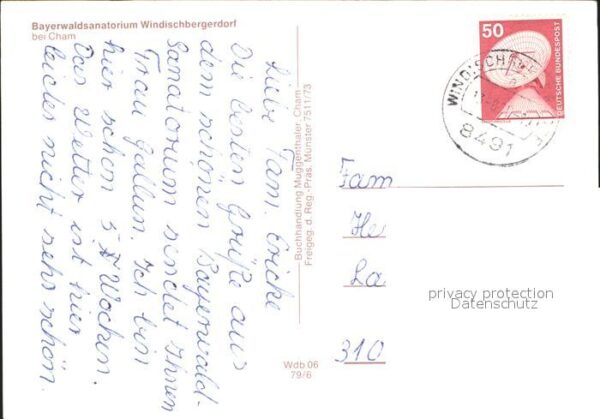 Bayerwaldsanatorium Windischbergerdorf
bei Cham
Liebe Fam. Ericke
Die besten Grüße aus
dem schönen Bayerwald-
sanatorium sendet Ihnen
Frau Gallun. Ich bin
hier schon 5 Wochen.
Das Wetter ist hier
leider nicht sehr schön.
Buchhandlung Muggenthaler Cham
Freigeg. d. Reg.-Präs. Münster 7511/73
Wdb 06
79/6
50
DEUTSCHE BUNDESPOST
8491
Fam
He
La
310
privacy protection
Datenschutz